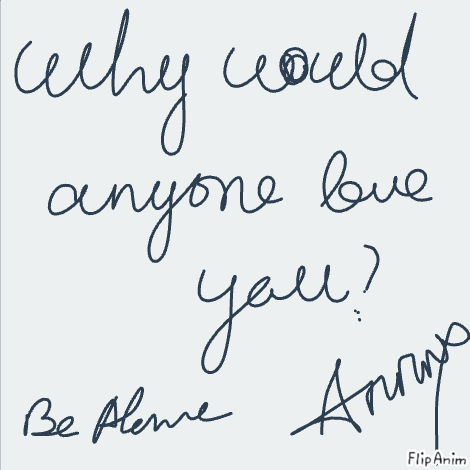 Why would
anyone love
you?
Be Alone
Anonys
FlipAnim